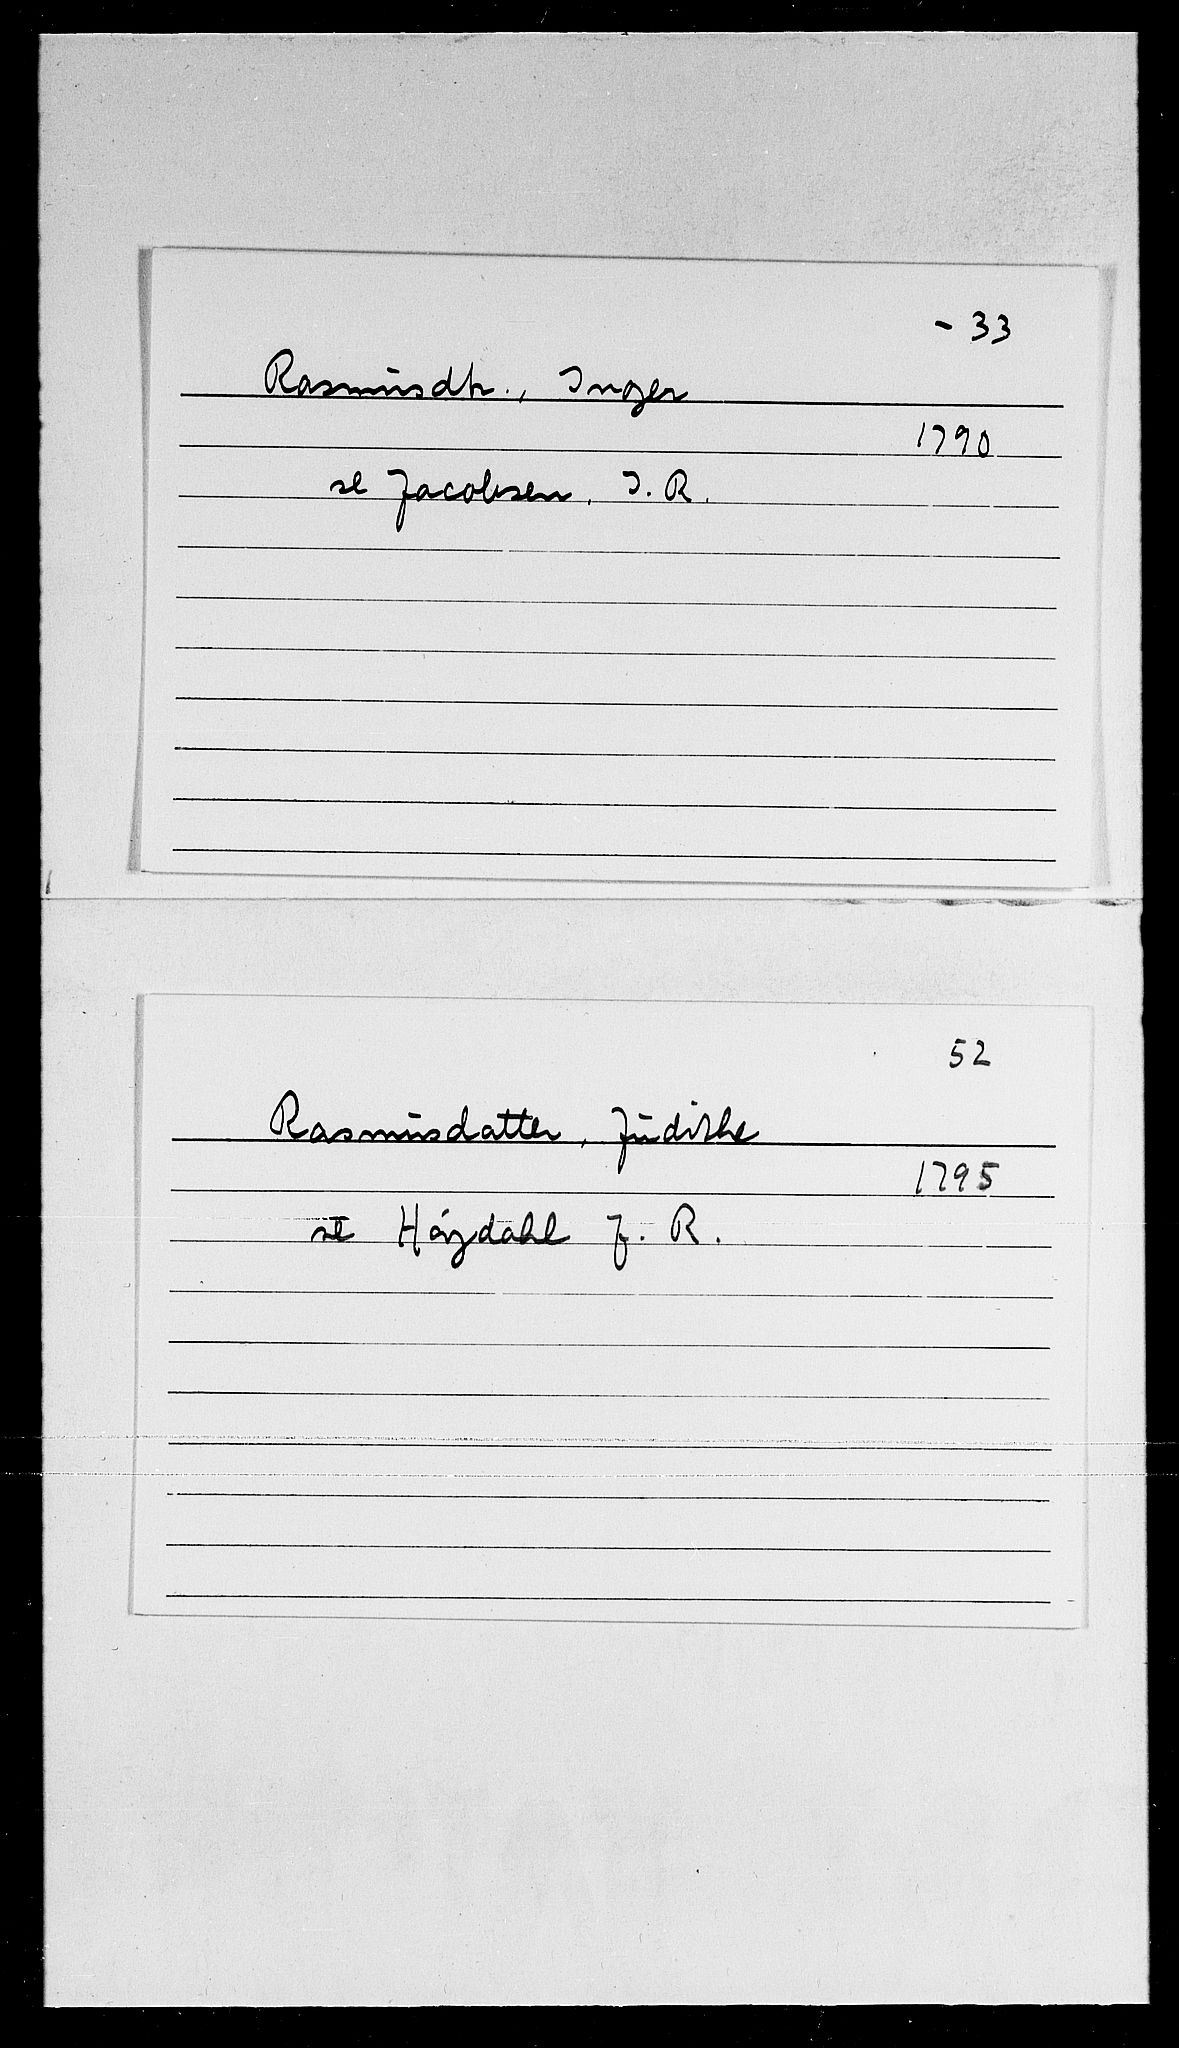 - 33
Rasmusdtr., Inger
1790
se Jacobsen, I. R.
52
Rasmusdatter, Judithe
1795
se Højdahl J. R.